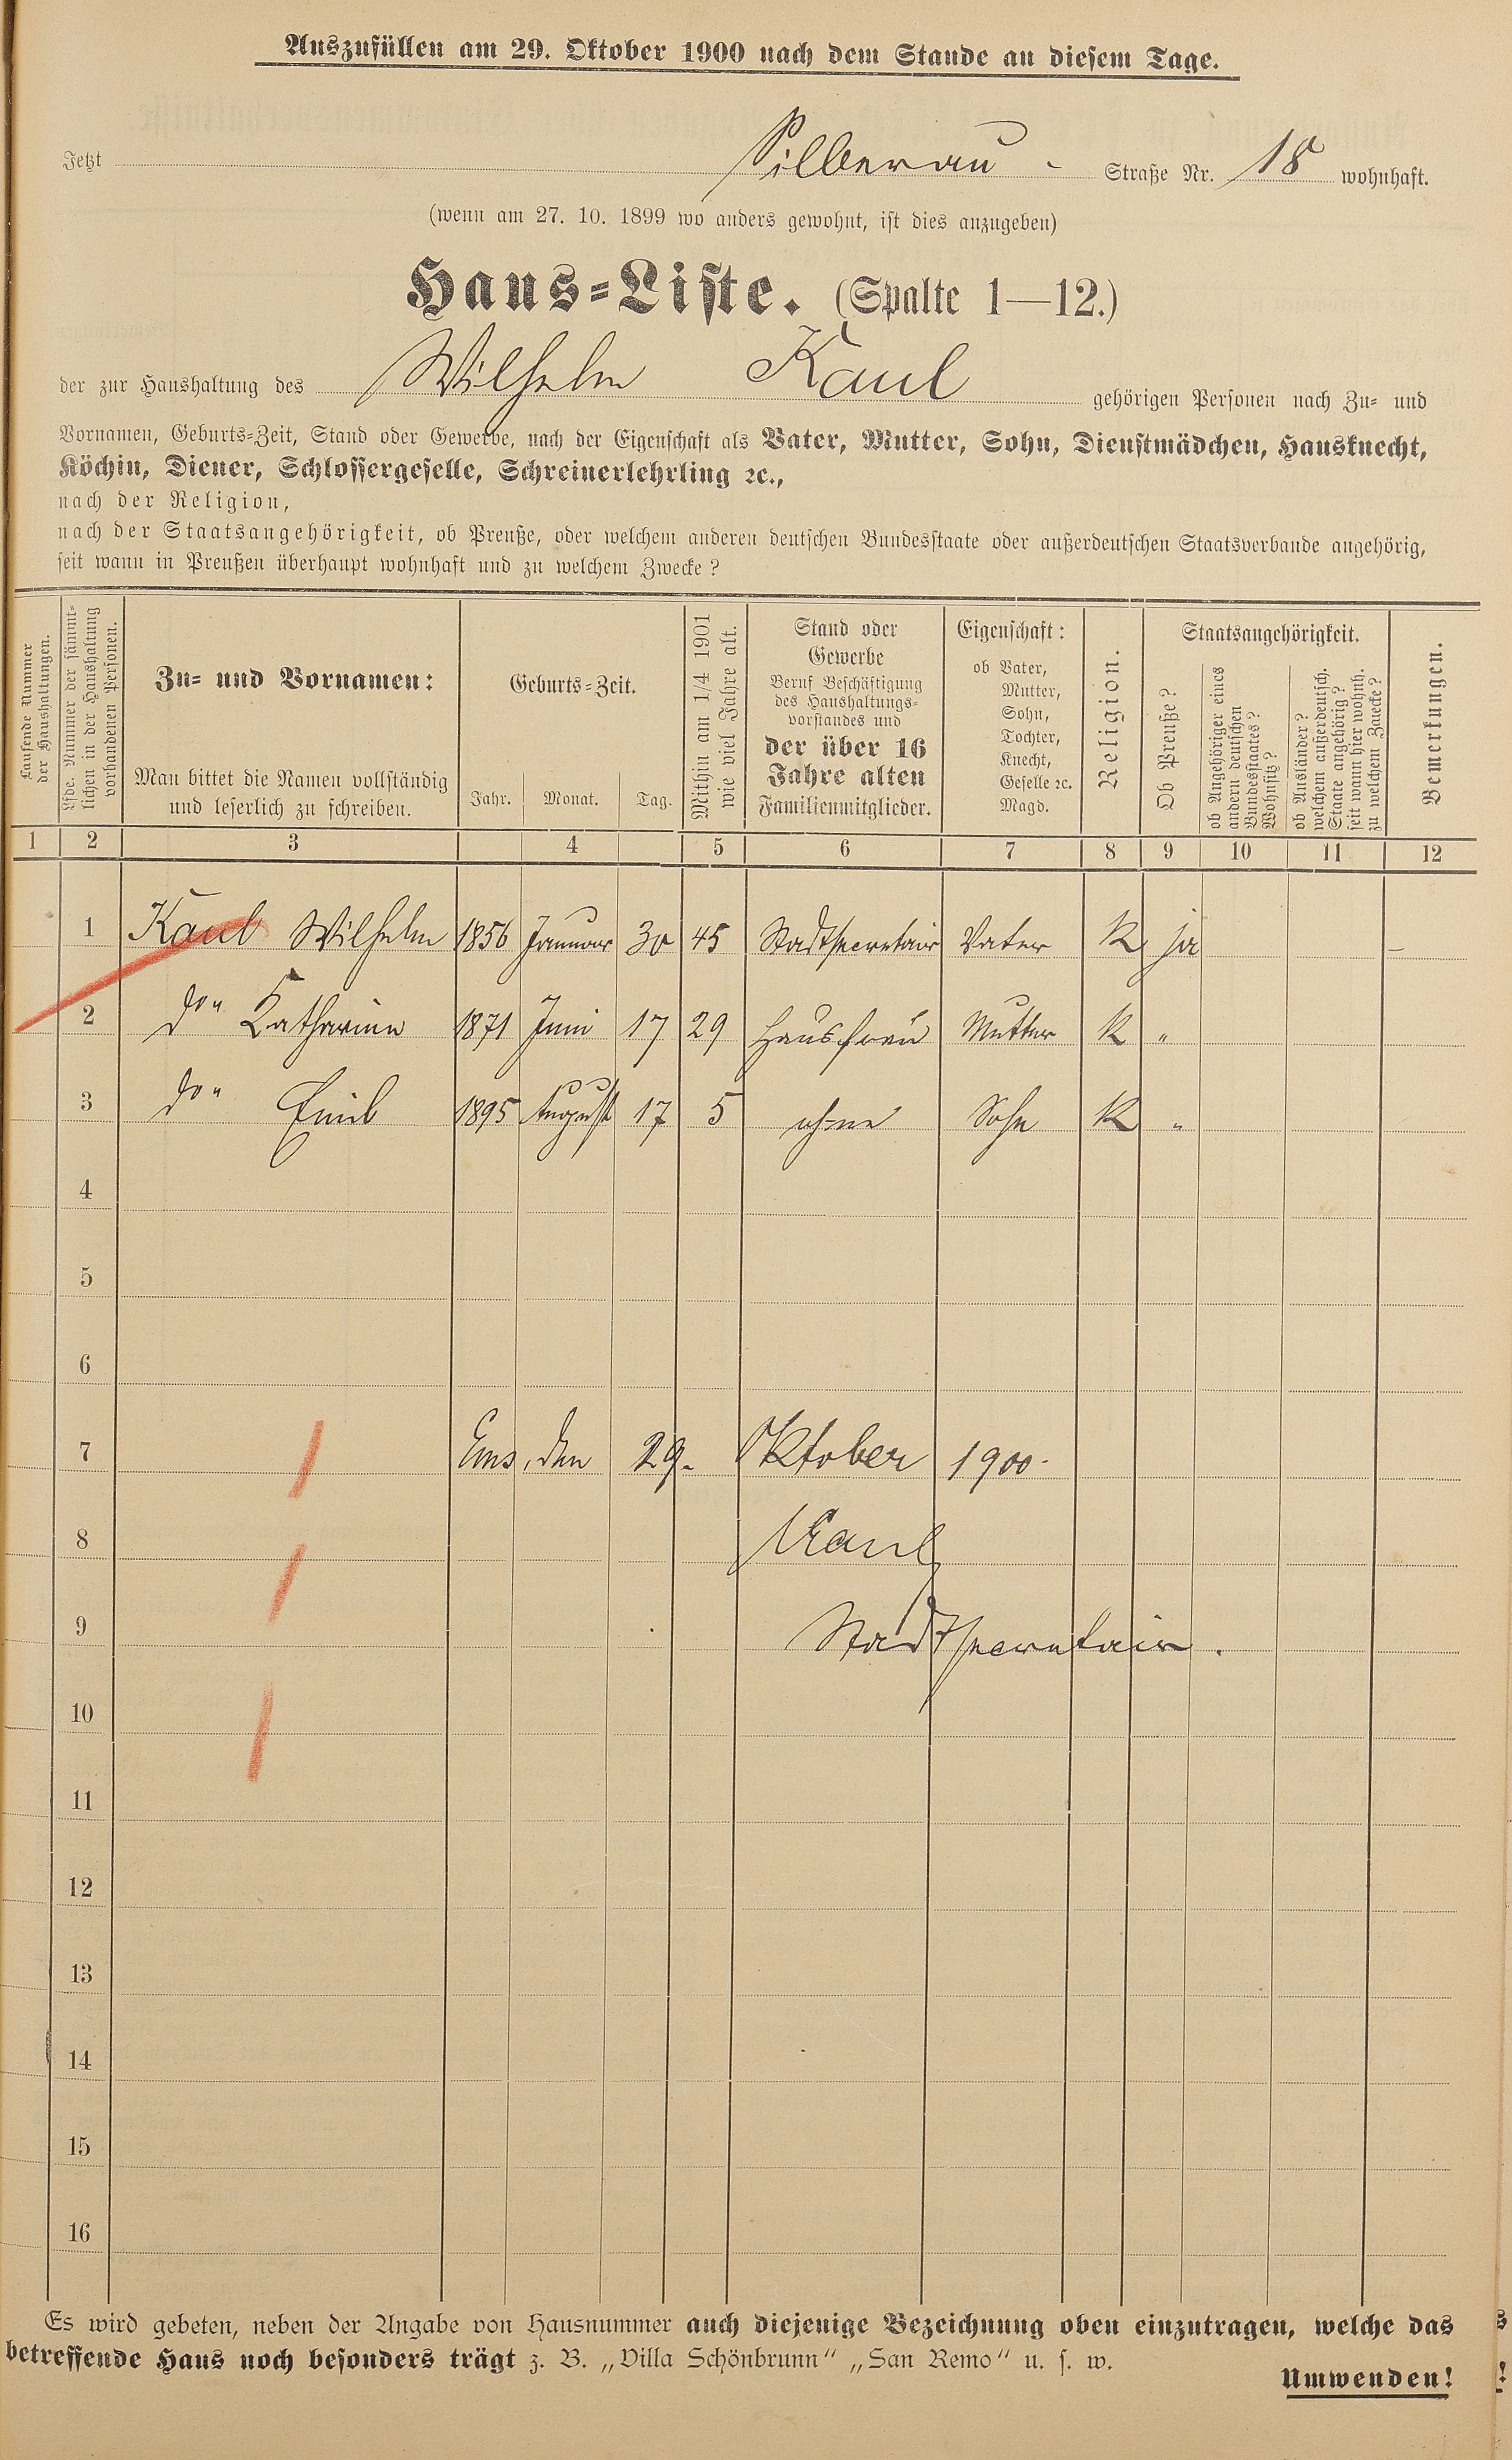 Auszufüllen am 29. Oktober 1900 nach dem Stande an diesem Tage.
Jetzt Silberau - Straße Nr. 18 wohnhaft.
(wenn am 27. 10. 1899 wo anders gewohnt, ist dies anzugeben)
Haus-Liste. (Spalte 1—12.)
der zur Haushaltung des Wilhelm Kaul gehörigen Personen nach Zu- und
Vornamen, Geburts-Zeit, Stand oder Gewerbe, nach der Eigenschaft als Vater, Mutter, Sohn, Dienstmädchen, Hausknecht,
Köchin, Diener, Schlossergeselle, Schreinerlehrling ꝛc.,
nach der Religion,
nach der Staatsangehörigkeit, ob Preuße, oder welchem anderen deutschen Bundesstaate oder außerdeutschen Staatsverbande angehörig,
seit wann in Preußen überhaupt wohnhaft und zu welchem Zwecke?
Laufende Nummer
der Haushaltungen.
Lfde. Nummer der sämmt-
lichen in der Haushaltung
vorhandenen Personen.
Zu- und Vornamen:
Man bittet die Namen vollständig
und leserlich zu schreiben.
Geburts-Zeit.
Jahr. Monat. Tag.
Mithin am 1/4 1901
wie viel Jahre alt.
Stand oder
Gewerbe
Beruf Beschäftigung
des Haushaltungs-
vorstandes und
der über 16
Jahre alten
Familienmitglieder.
Eigenschaft:
ob Vater,
Mutter,
Sohn,
Tochter,
Knecht,
Geselle ꝛc.
Magd.
Religion.
Staatsangehörigkeit.
Ob Preuße?
ob Angehöriger eines
andern deutschen
Bundesstaates?
Wohnsitz?
ob Ausländer?
welchem außerdeutsch.
Staate angehörig?
seit wann hier wohnh.
zu welchem Zwecke?
Bemerkungen.
1 2 3 4 5 6 7 8 9 10 11 12
1 Kaul Wilhelm 1856 Januar 30 45 Stadtsecretair Vater K ja –
2 do" Katharina 1871 Juni 17 29 Hausfrau Mutter K "
3 do" Emil 1895 August 17 5 ohne Sohn K "
4
5
6
7 Ems, den 29. Oktober 1900.
8 Kaul
9 Stadtsecretair.
10
11
12
13
14
15
16
Es wird gebeten, neben der Angabe von Hausnummer auch diejenige Bezeichnung oben einzutragen, welche das
betreffende Haus noch besonders trägt z. B. „Villa Schönbrunn" „San Remo" u. s. w.
Umwenden!